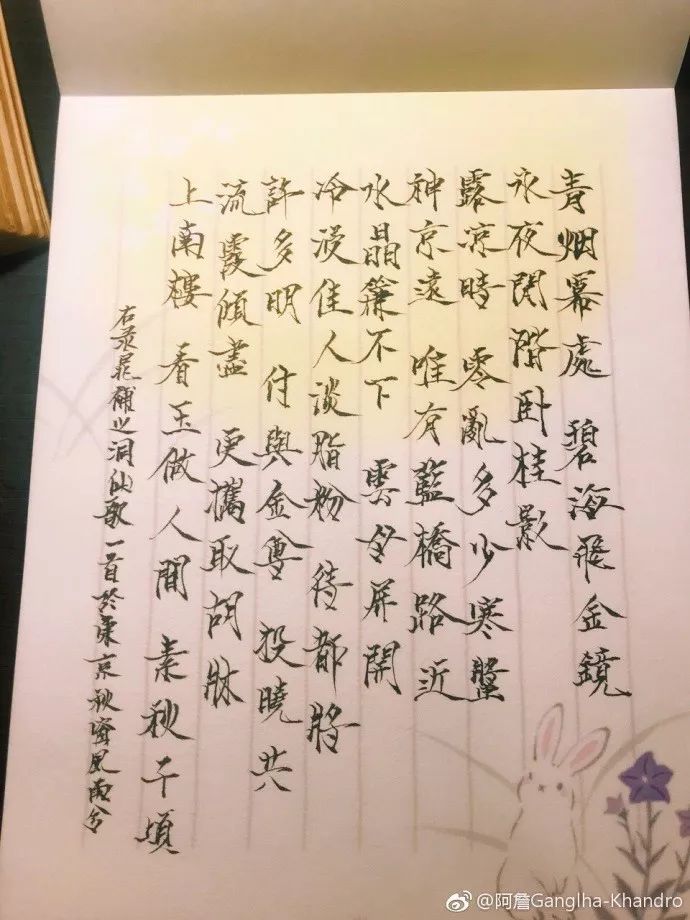 青烟幂處 碧海飛金鏡
永夜閒階卧桂影
露凉時 零亂多少寒螿
神京遠 唯有藍橋路近
水晶簾不下 雲母屏開
冷浸佳人談脂粉 待都將
許多明 付與金尊 投曉共
流霞傾盡 更攜取胡牀
上南樓 看玉做人間 素秋千頃
右录晁補之洞仙歌一首於東京秋窗風雨
@阿詹Ganglha-Khandro